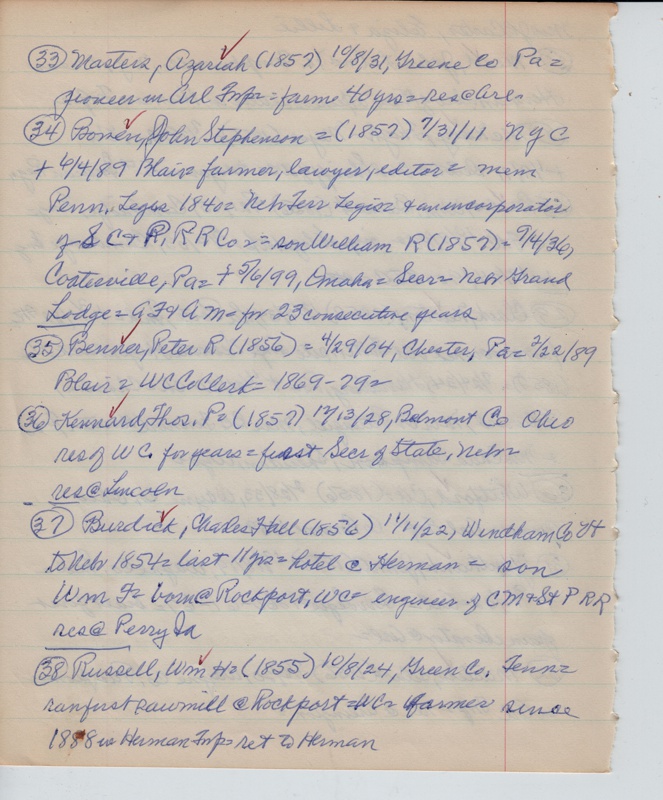 33 Masters, Azariah (1857) 10/8/31, Greene Co Pa =
pioneer in Arl Twp = farm 40 yrs = res @ Arl
34 Bowen, John Stephenson = (1857) 7/31/11 N Y C
+ 4/4/89 Blair = farmer, lawyer, editor = mem
Penn. Legis 1840 = Nebr Terr Legis = & an incorporator
of S C & P, R R Co = = son William R (1857) = 9/4/36,
Coatesville, Pa = + 5/6/99, Omaha = Secr = Nebr Grand
Lodge = A F & A M = for 23 consecutive years
35 Benner, Peter R (1856) = 4/29/04, Chester, Pa = 2/22/89
Blair = WC Co Clerk = 1869-79 =
36 Kennard, Thos. P = (1857) 12/13/28, Belmont Co Ohio
res of WC. for years = first Secr of State, Nebr =
res @ Lincoln
37 Burdick, Charles Hall (1856) 11/11/22, Windham Co Vt
to Nebr 1854 = last 11 yrs = hotel @ Herman = son
Wm F = born @ Rockport, WC = engineer of C M & St P R R
res @ Perry Ia
38 Russell, Wm H = (1855) 10/8/24, Green Co. Tenn =
ran first sawmill @ Rockport = WC = farmer since
1888 in Herman Twp = ret to Herman